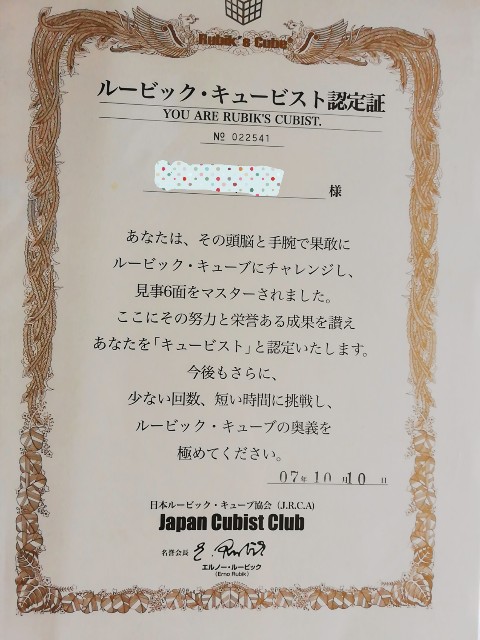 Rubik's Cube
ルービック・キュービスト認定証
YOU ARE RUBIK'S CUBIST.
№ 022541
様
あなたは、その頭脳と手腕で果敢に
ルービック・キューブにチャレンジし、
見事6面をマスターされました。
ここにその努力と栄誉ある成果を讃え
あなたを「キュービスト」と認定いたします。
今後もさらに、
少ない回数、短い時間に挑戦し、
ルービック・キューブの奥義を
極めてください。
07年10月10日
日本ルービック・キューブ協会 (J.R.C.A)
Japan Cubist Club
名誉会長 E. Rubik
エルノー・ルービック
(Erno Rubik)